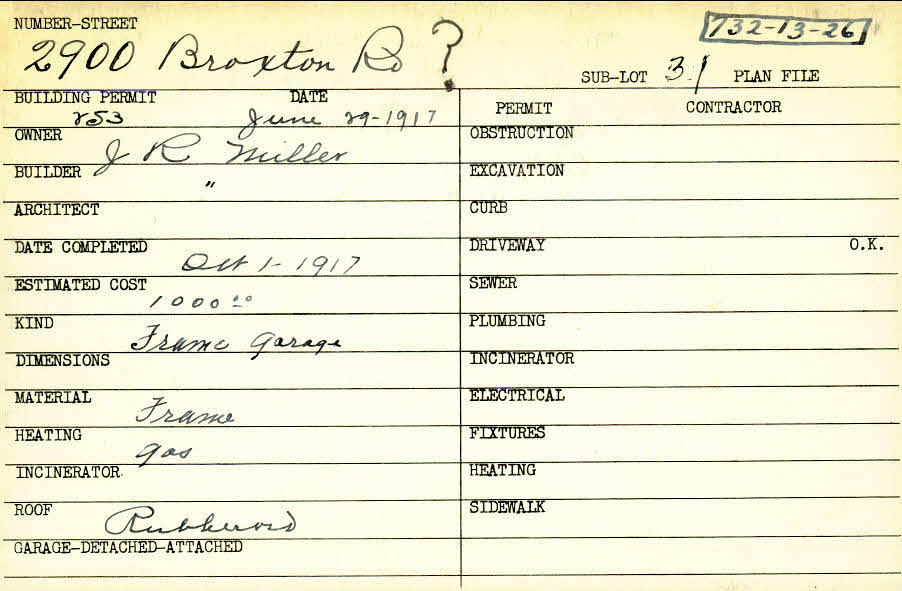 NUMBER-STREET
732-13-26
2900 Broxton Rd ?
SUB-LOT 31 PLAN FILE
BUILDING PERMIT DATE
253 June 29-1917
PERMIT CONTRACTOR
OWNER J R Miller
OBSTRUCTION
BUILDER "
EXCAVATION
ARCHITECT
CURB
DATE COMPLETED Oct 1-1917
DRIVEWAY O.K.
ESTIMATED COST 1000 00
SEWER
KIND Frame Garage
PLUMBING
DIMENSIONS
INCINERATOR
MATERIAL Frame
ELECTRICAL
HEATING gas
FIXTURES
INCINERATOR
HEATING
ROOF Rubberoid
SIDEWALK
GARAGE-DETACHED-ATTACHED